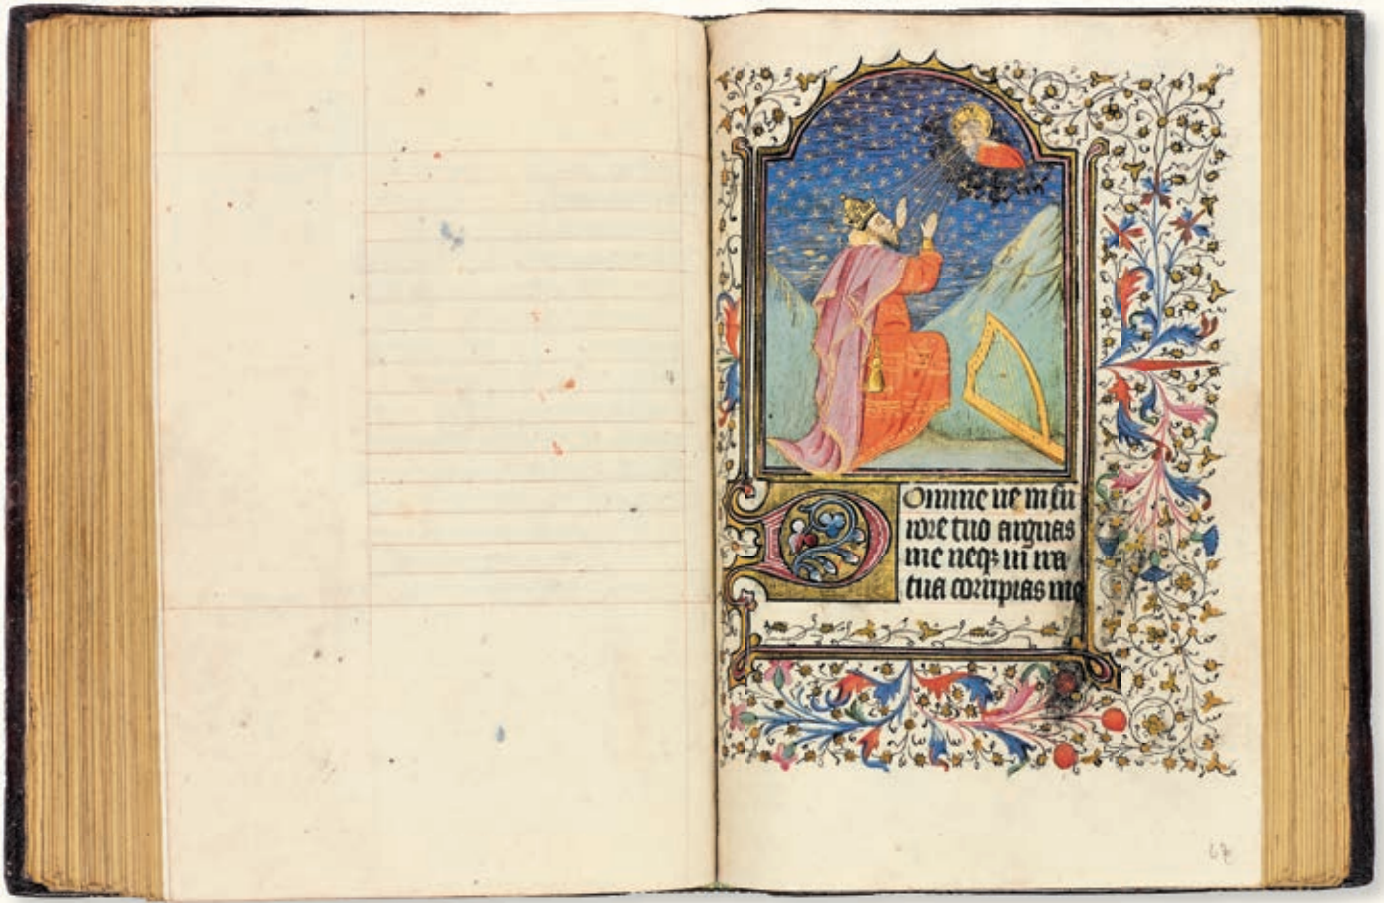 Domine ne in fu
rore tuo arguas
me neqꝫ in ira
tua corripias me
67